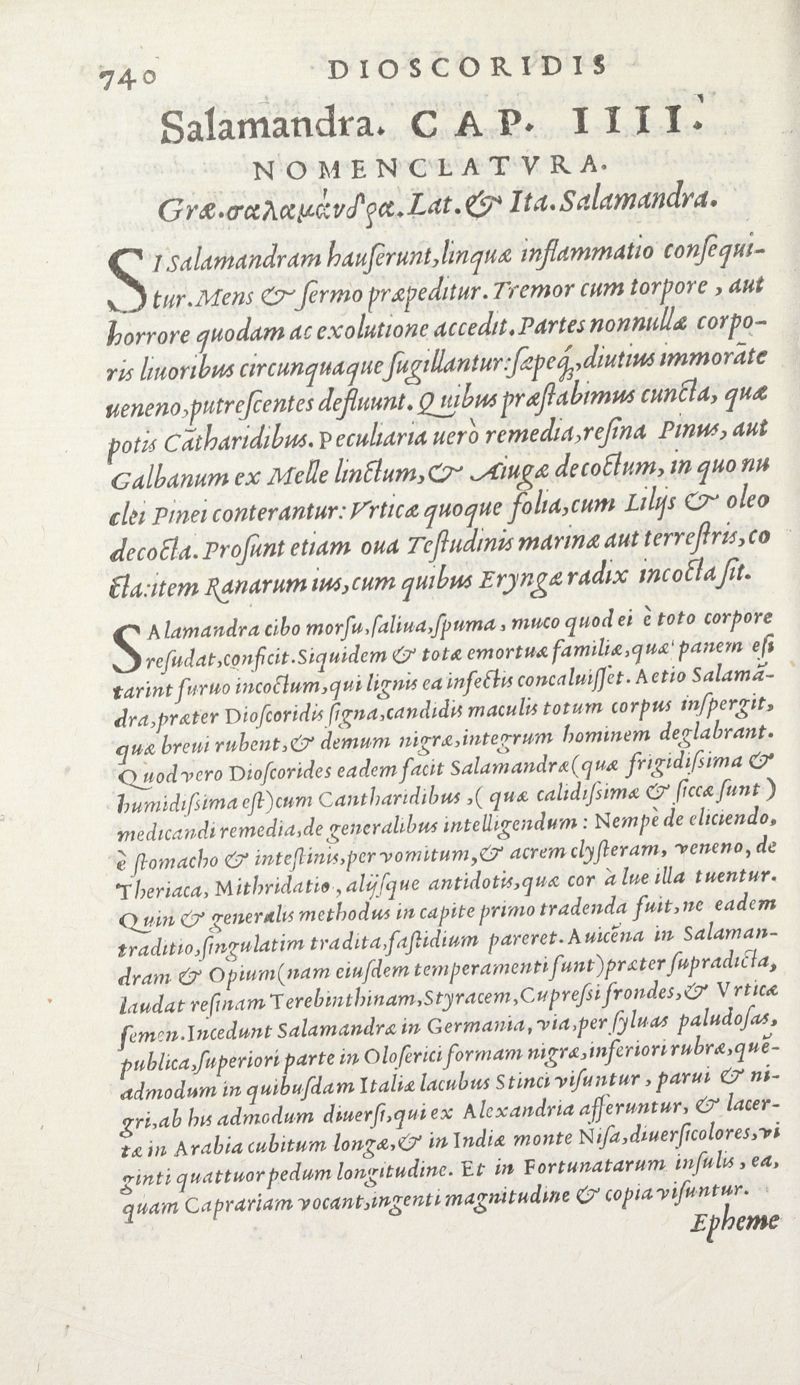 740 DIOSCORIDIS
Salamandra. CAP. IIII.
NOMENCLATVRA.
Græ.σαλαμάνδρα. Lat. & Ita. Salamandra.
SI Salamandram hauſerunt, linquæ inflammatio conſequi-
tur. Mens & ſermo præpeditur. Tremor cum torpore, aut
horrore quodam ac exolutione accedit. Partes nonnullæ corpo-
ris liuoribus circunquaque ſugillantur: ſæpeq́;, diutius immorāte
ueneno, putreſcentes defluunt. Quibus præſtabimus cuncta, quæ
potis Cātharidibus. Peculiaria uerò remedia, reſina Pinus, aut
Galbanum ex Melle linctum, & Aiugæ decoctum, in quo nu
clei Pinei conterantur: Vrticæ quoque folia, cum Lilijs & oleo
decocta. Proſunt etiam oua Teſtudinis marinæ aut terreſtris, co
cta: item Ranarum ius, cum quibus Eryngæ radix incocta ſit.
SAlamandra cibo morſu, ſaliua, ſpuma, muco quod ei è toto corpore
reſudat, conficit. Siquidem & totæ emortuæ familiæ, quæ panem eſi
tarint furuo incoctum, qui lignis ea infectis concaluiſſet. Aetio Salamā-
dra, præter Dioſcoridis ſigna, candidis maculis totum corpus inſpergit,
quæ breui rubent, & demum nigræ, integrum hominem deglabrant.
Quod vero Dioſcorides eadem facit Salamandræ (quæ frigidiſsima &
humidiſsima eſt) cum Cantharidibus, (quæ calidiſsimæ & ſiccæ ſunt)
medicandi remedia, de generalibus intelligendum: Nempè de eliciendo,
è ſtomacho & inteſtinis, per vomitum, & acrem clyſteram, veneno, de
Theriaca, Mithridatio, alijſque antidotis, quæ cor à lue illa tuentur.
Quin & generalis methodus in capite primo tradenda fuit, ne eadem
traditio, ſingulatim tradita, faſtidium pareret. Auicēna in Salaman-
dram & Opium (nam eiuſdem temperamenti ſunt) præter ſupradicta,
laudat reſinam Terebinthinam, Styracem, Cupreſsi frondes, & Vrticæ
ſemen. Incedunt Salamandræ in Germania, via, per ſyluas paludoſas,
publica, ſuperiori parte in Oloſerici formam nigræ, inferiori rubræ, quē-
admodum in quibuſdam Italiæ lacubus Stinci viſuntur, parui & ni-
gri, ab his admodum diuerſi, qui ex Alexandria afferuntur, & lacer-
tæ in Arabia cubitum longæ, & in Indiæ monte Niſa, diuerſicolores, vi
ginti quattuor pedum longitudine. Et in Fortunatarum inſulis, ea,
quam Caprariam vocant, ingenti magnitudine & copia viſuntur.
Epheme